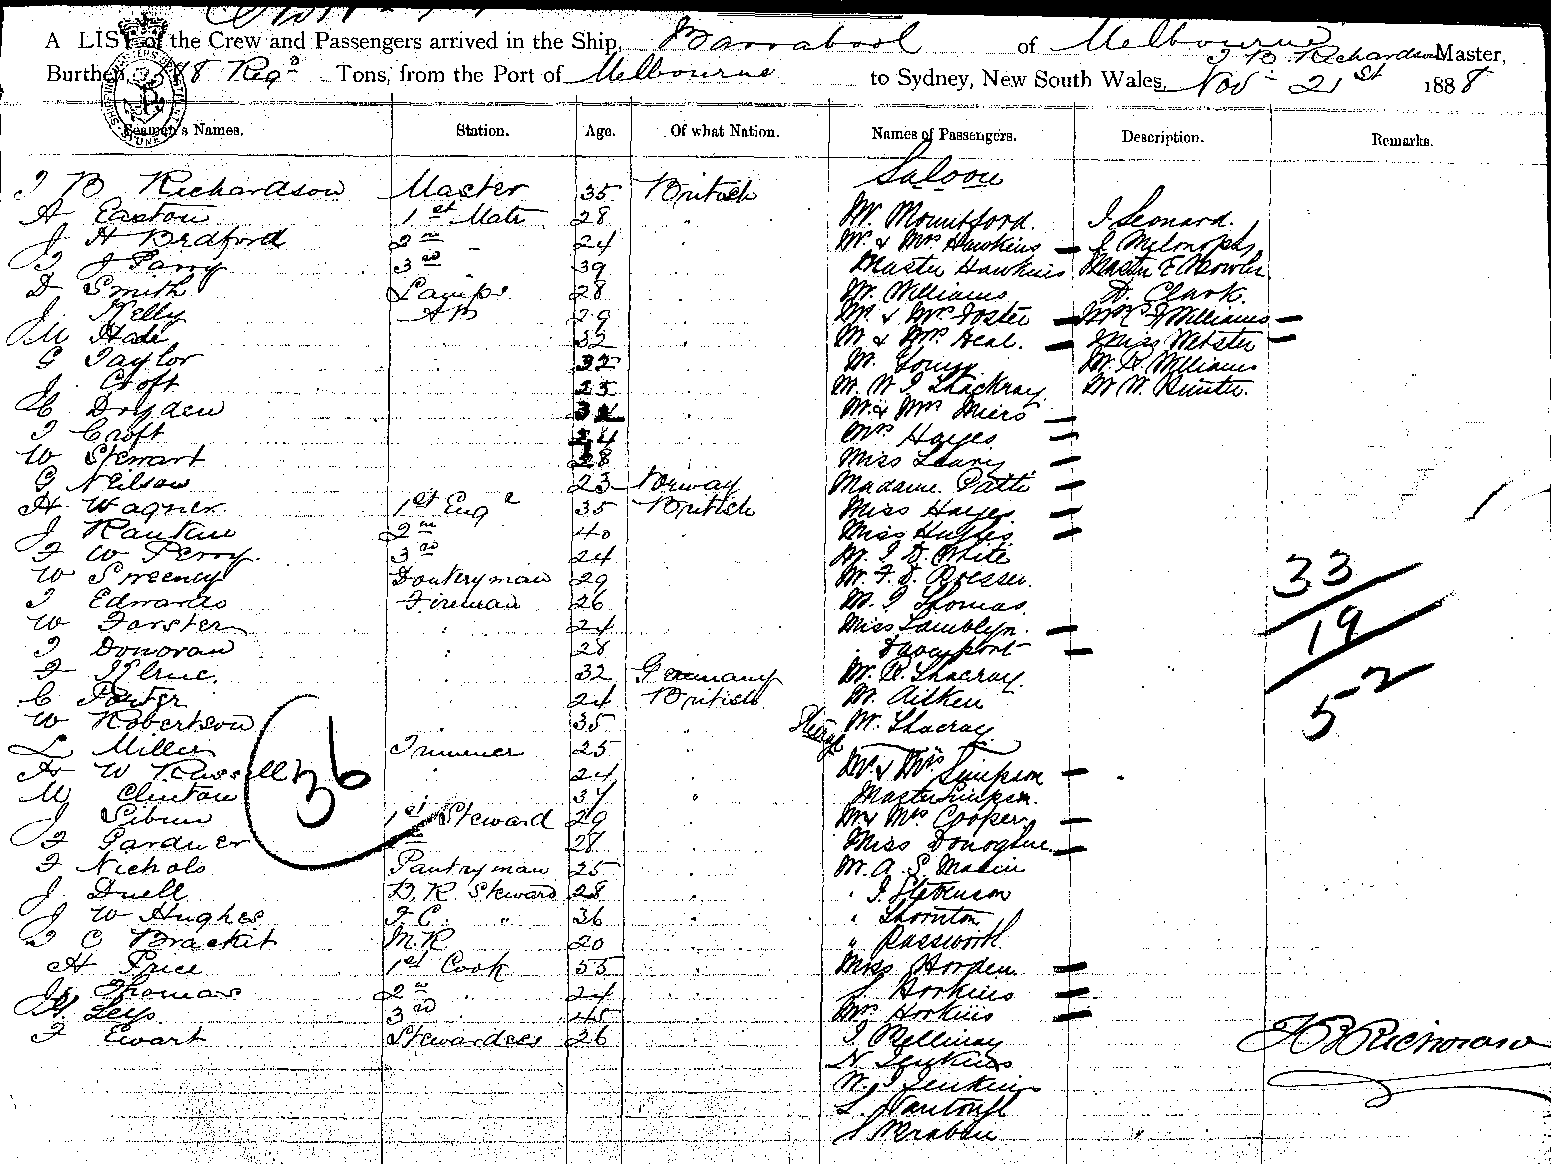 A LIST of the Crew and Passengers arrived in the Ship, Barrabool of Melbourne
J B Richardson Master,
Burthen 88 Regd Tons, from the Port of Melbourne to Sydney, New South Wales, Nov 21st 1888
Seamen's Names. Station. Age. Of what Nation. Names of Passengers. Description. Remarks.
Saloon
J B Richardson Master 35 British
A Easton 1st Mate 28 Mr Mountford. J Leonard.
J H Bradford 2nd 24 Mr & Mrs Hawkins
T J Parry 3rd 39 Master Hawkins Master E
D Smith Lamps 28 Mr Williams D. Clark.
J. Kelly AB 29 Mr & Mrs Foster Williams
M Hade 32 Mr & Mrs Deal. Miss Webster
G Taylor 32 Mr Young Mr R Williams
J. Croft 25 Mr W J Thackray Mr W. Hunter.
C Dryden 32 Mr & Mrs Miers
T Croft 24 Mrs Hayes
W Stewart 28 Miss Leury
G Neilson 23 Norway Madame Patti
H Wagner 1st Engr 35 British Miss Hayes
J Rankin 2nd 40 Miss Hughes
F W Perry 3rd 24 Mr J D. White
W Sweeney Donkeyman 29 Mr F. D.
T Edwards Fireman 26 Mr J Thomas
W Forster 24 Miss Lamblyn
T Donovan 28 Davenport
F 32 Germany Mr R. Thacray
C Porter 24 British Mr Aitken
W Robertson 35 Mr Thacray
Steerage
L Miller Trimmer 25
H W Russell 24 Mr & Mrs Simpson
M Clinton 37 Master Simpson
J 1st Steward 29 Mr & Mrs Cooper
F Gardner 28 Miss Donoghue
F Nichols Pantryman 25 Mr A. S.
J. Duell B. R Steward 28 J. Stevenson
J W Hughes F. C. " 36 Thornton
T C Bracket M. R 20 " Passworth
H Price 1st Cook 55 Miss Horden
J. Thomas 2nd 24 Horkins
Leys 3rd 45 Mrs Horkins
F Ewart Stewardess 26 J
N. Jenkins
W. J Jenkins
36
33
19
52